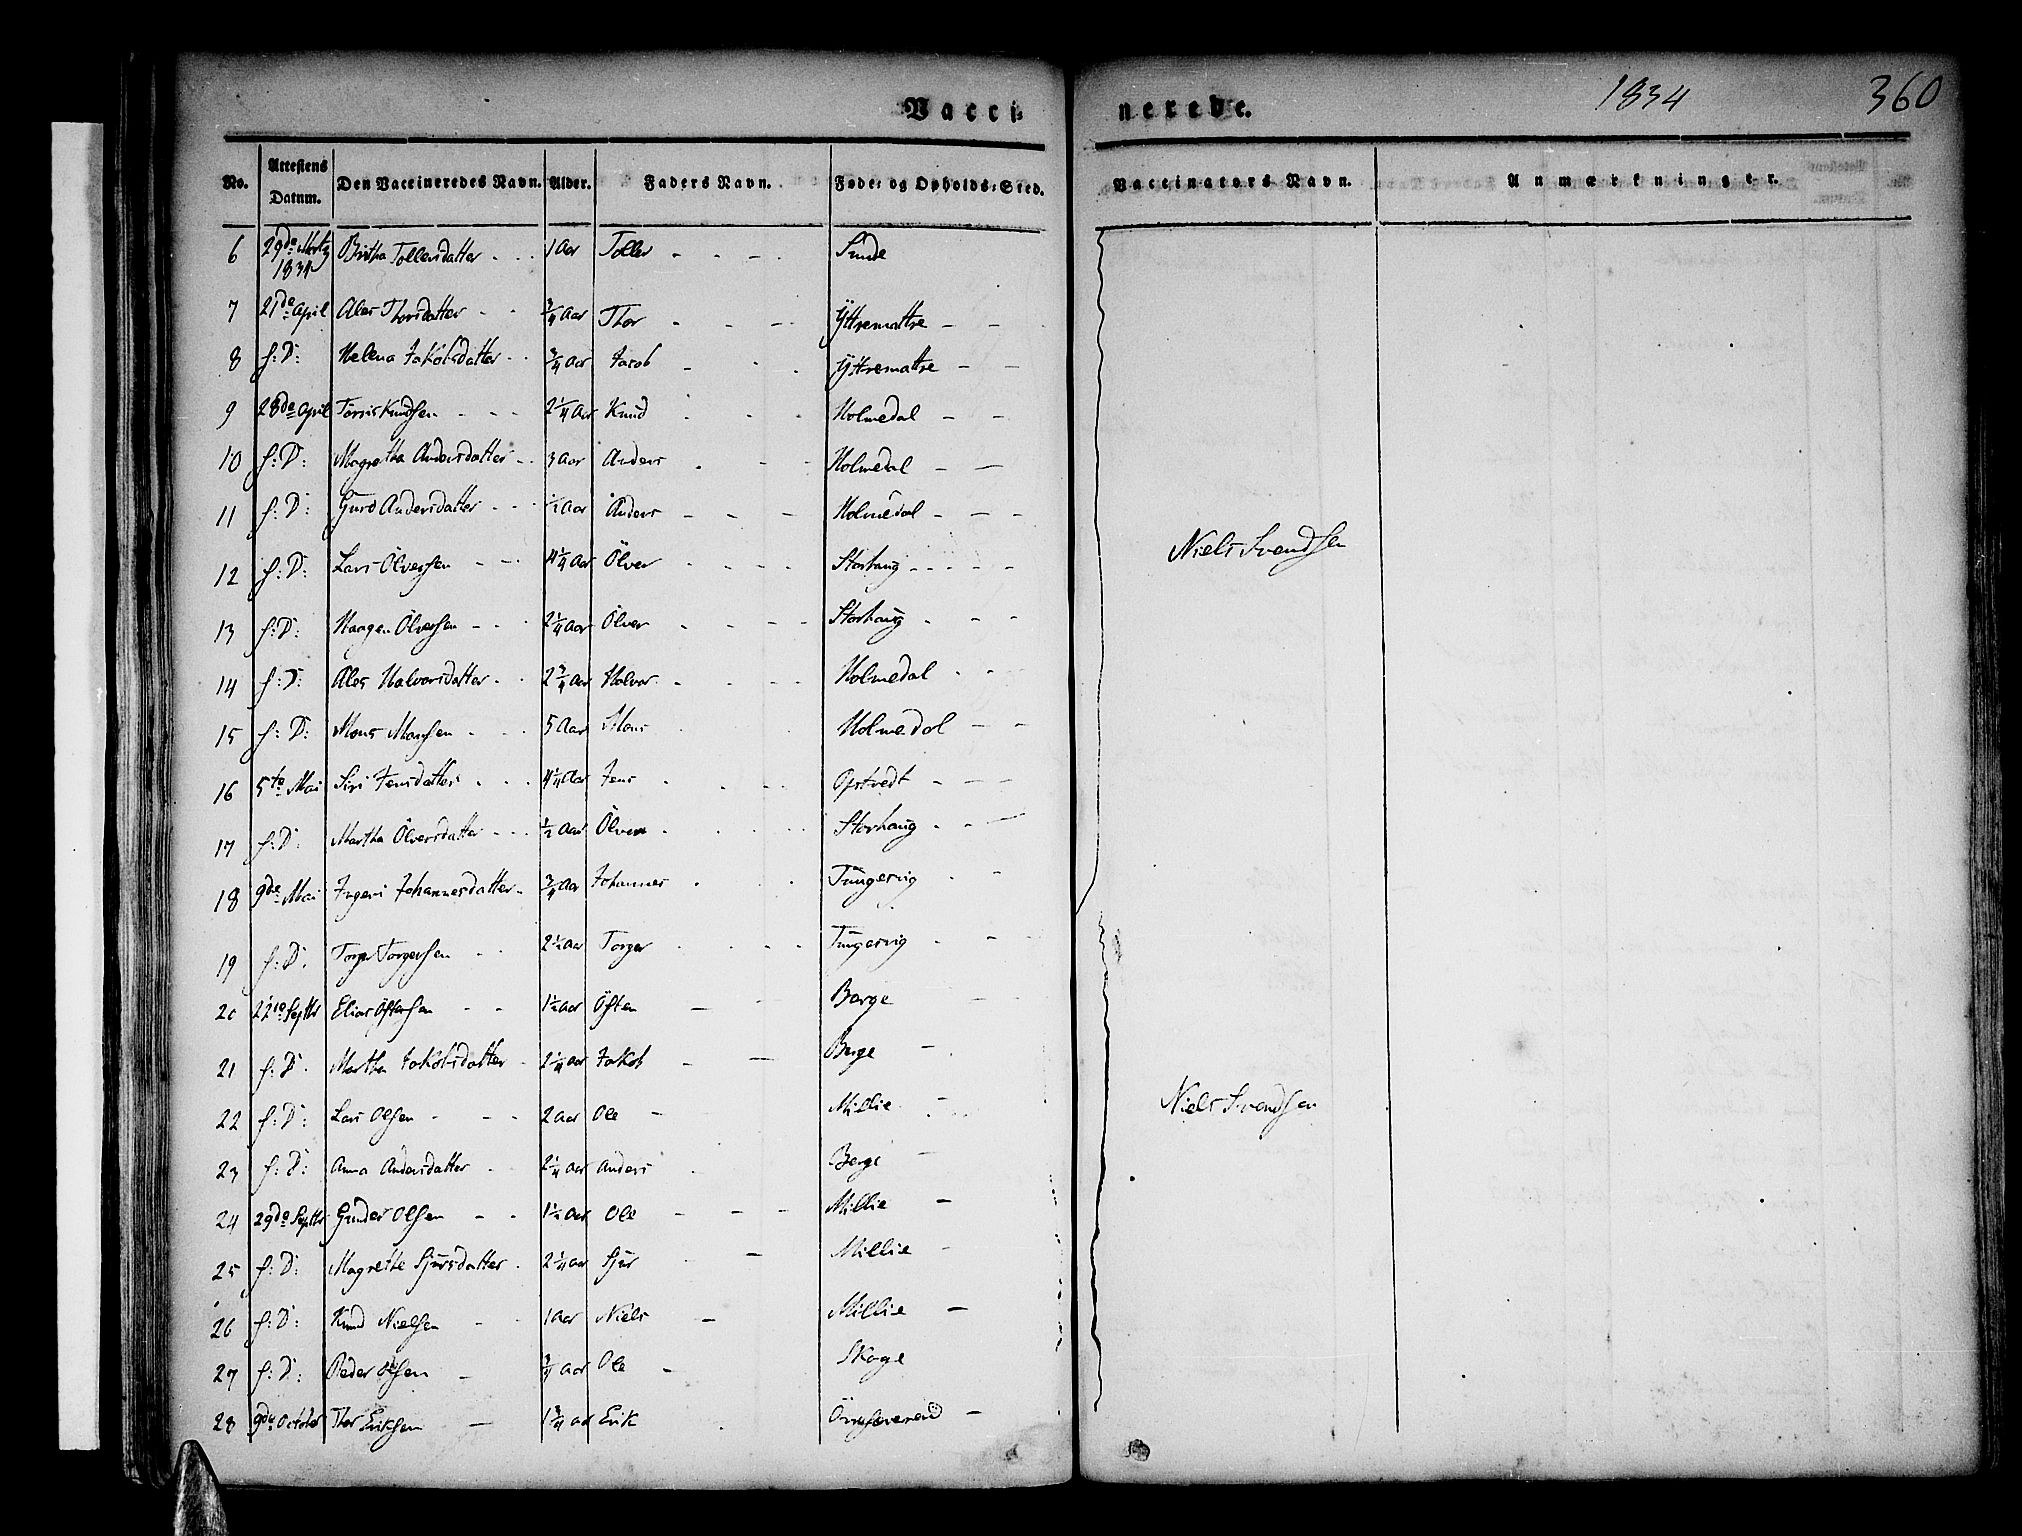 Vacci- nerede. 1834 360
No. Attestens Datum. Den Vaccineredes Navn. Alder. Faders Navn. Føde- og Opholds-Sted. Vaccinators Navn. Anmærkninger.
6 29de Martz 1834 Britha Tollersdatter 1 Aar Toller Sunde
7 21de April Ales Thorsdatter 3/4 Aar Thor Yttremattre
8 f: D: Helena Jakobsdatter 3/4 Aar Jacob Yttremattre
9 28de April Torris Knudsen 2 1/4 Aar Knud Holmedal
10 f: D: Magretha Andersdatter 3 Aar Anders Holmedal
11 f: D: Guro Andersdatter 1/2 Aar Anders Holmedal
12 f: D: Lars Ölversen 4 1/4 Aar Ölver Storhaug
Niels Svendsen
13 f: D: Haagen Ölversen 2 1/4 Aar Ölver Storhaug
14 f: D: Ales Halvorsdatter 2 3/4 Aar Halvor Holmedal
15 f: D: Mons Monsen 5 Aar Mons Holmedal
16 5te Mai Siri Jensdatter 4 1/4 Aar Jens Opstvedt
17 f: D: Martha Ölversdatter 1/2 Aar Ölver Storhaug
18 9de Mai Ingeri Johannesdatter 3/4 Aar Johannes Tungervig
19 f: D. Torger Torgersen 2 1/2 Aar Torger Tungervig
20 22de Septbr Elias Östensen 1 1/2 Aar Östen Berge
21 f: D. Martha Jakobsdatter 2 1/4 Aar Jakob Berge
22 f: D: Lars Olsen 2 Aar Ole Millie
Niels Svendsen
23 f: D: Anna Andersdatter 2 1/4 Aar Anders Berge
24 29de Septbr Gunder Olsen 1 1/2 Aar Ole Millie
25 f: D: Magrethe Sjursdatter 2 1/4 Aar Sjur Millie
26 f: D: Knud Nielsen 1 Aar Niels Millie
27 f: D: Peder Olsen 3/4 Aar Ole Skoge
28 9de October Thor Eriksen 1 3/4 Aar Erik